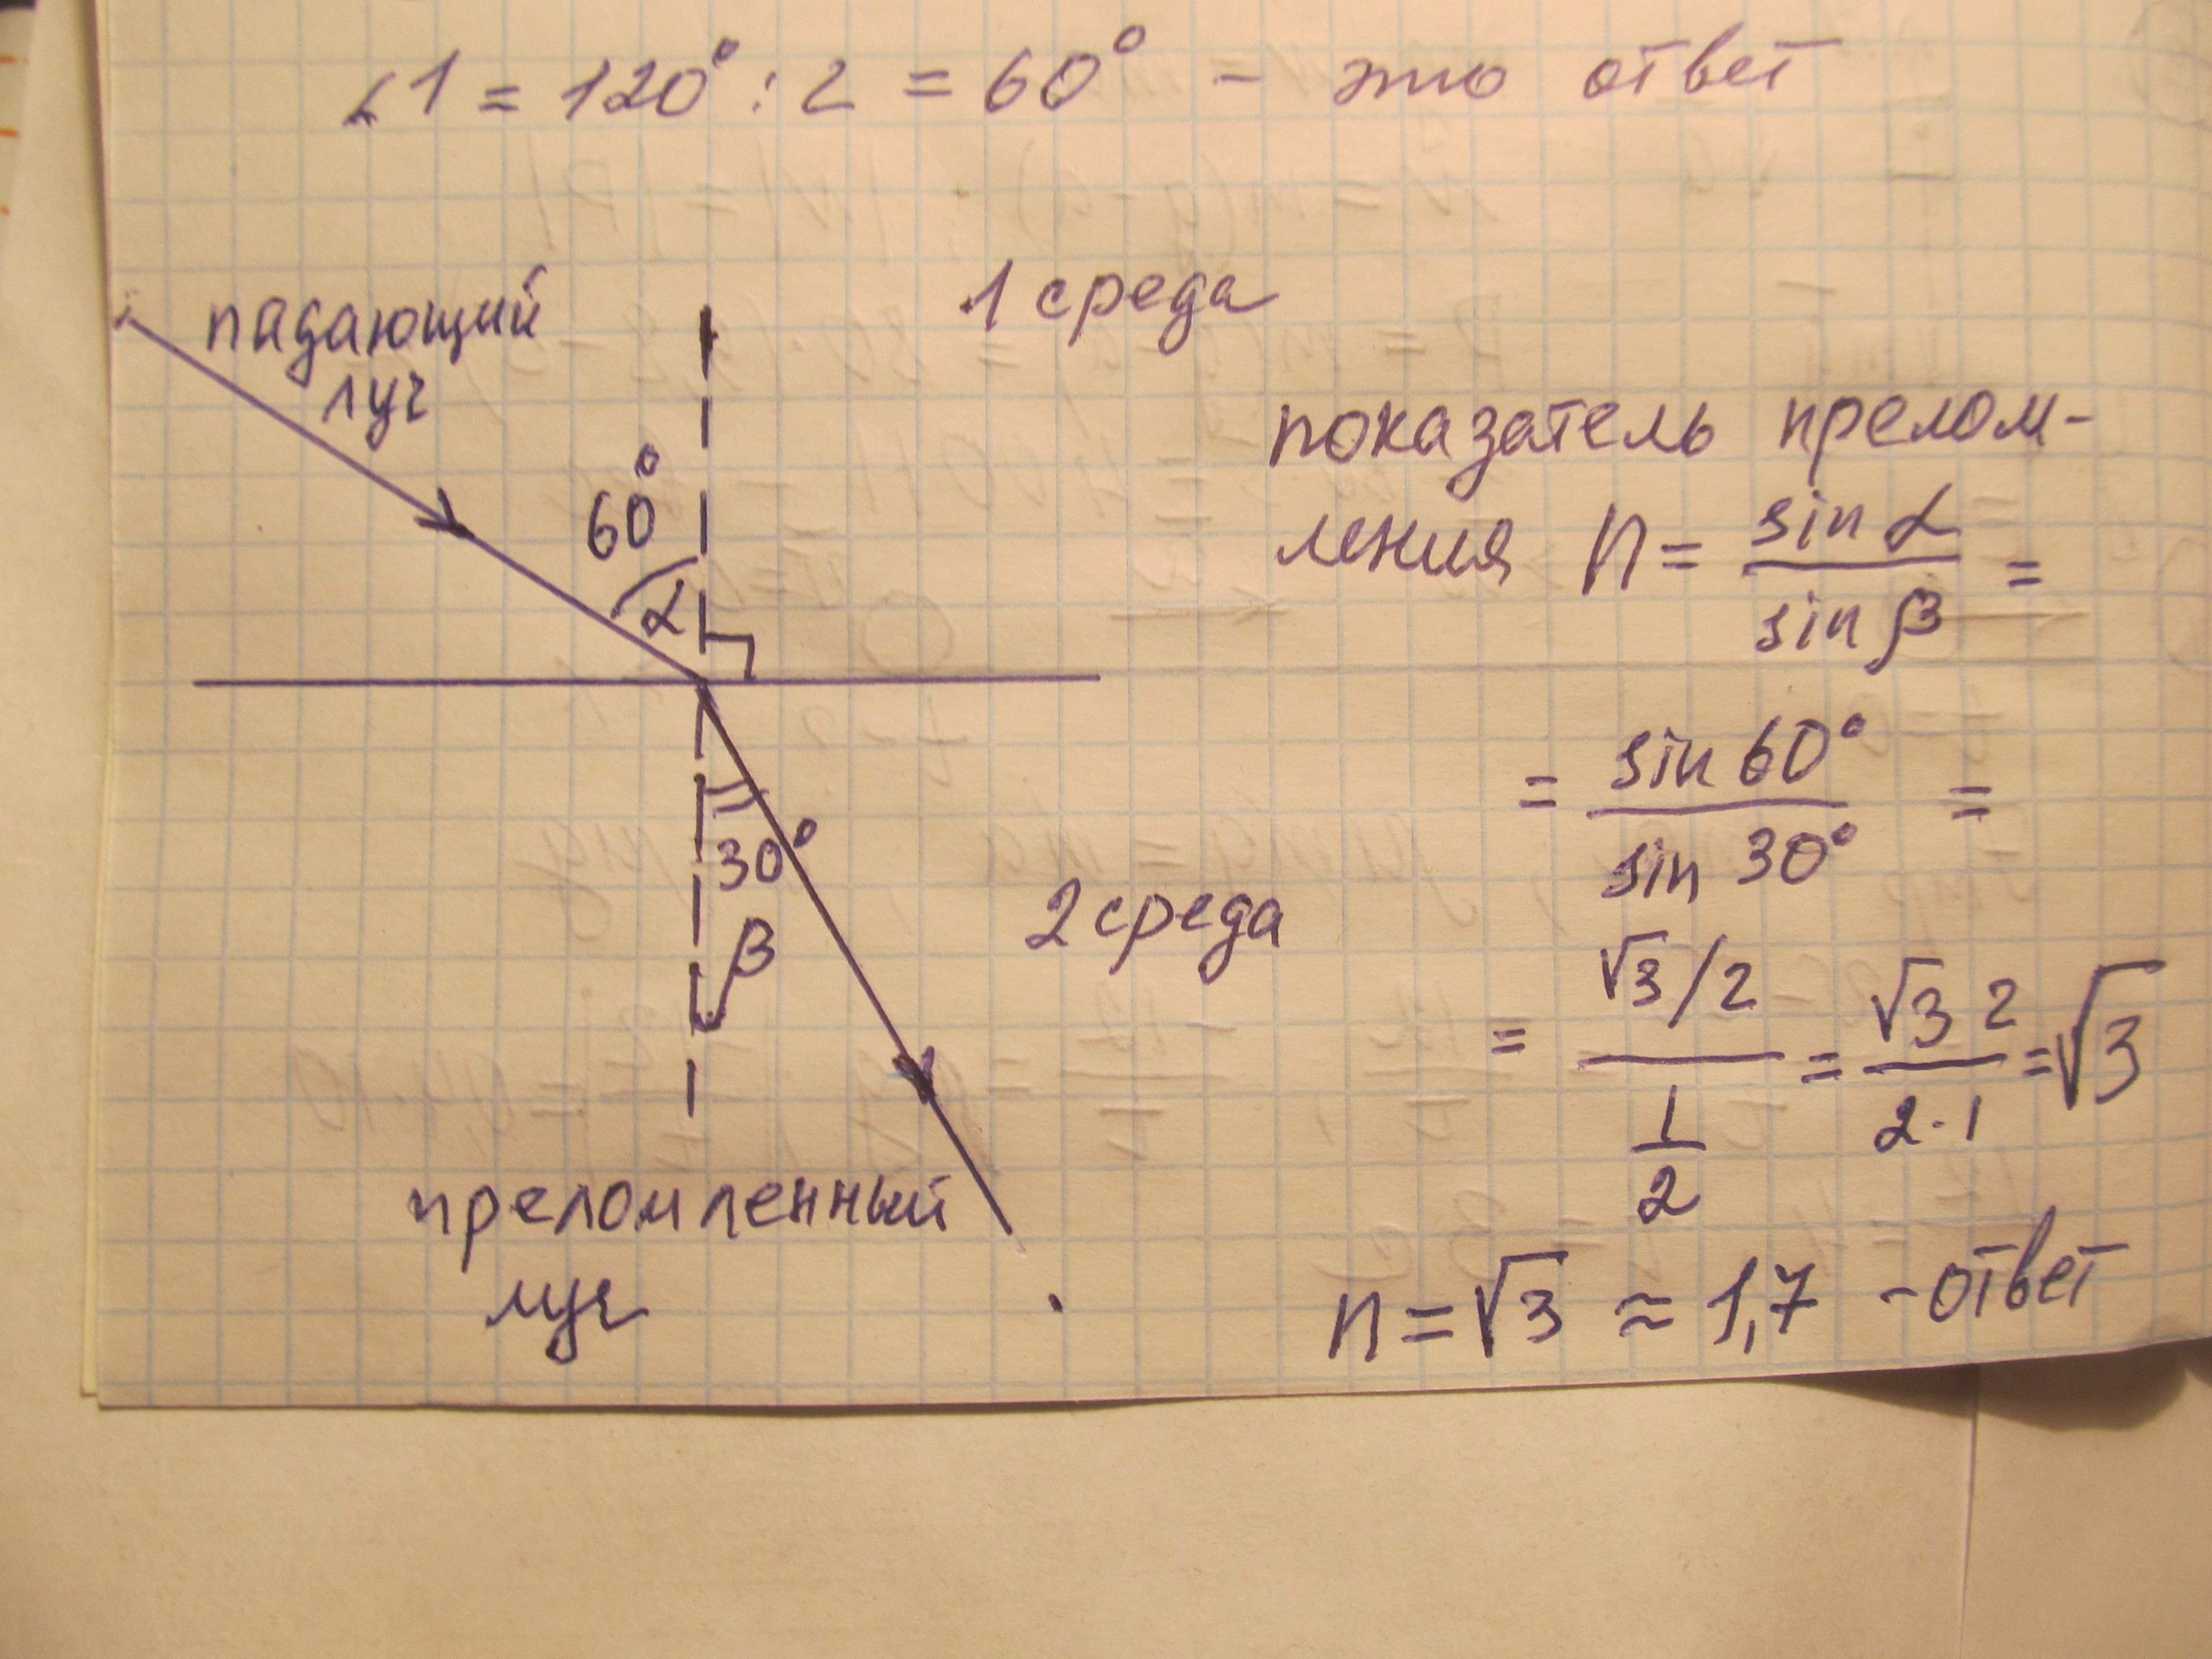 ∠1 = 120° : 2 = 60° - это ответ
падающий
луч
1 среда
60°
α
показатель прелом-
ления n = sin α / sin β =
= sin 60° / sin 30° =
30°
β
2 среда
= √3/2 / 1/2 = √3 2 / 2·1 = √3
преломленный
луч
n = √3 ≈ 1,7 - ответ